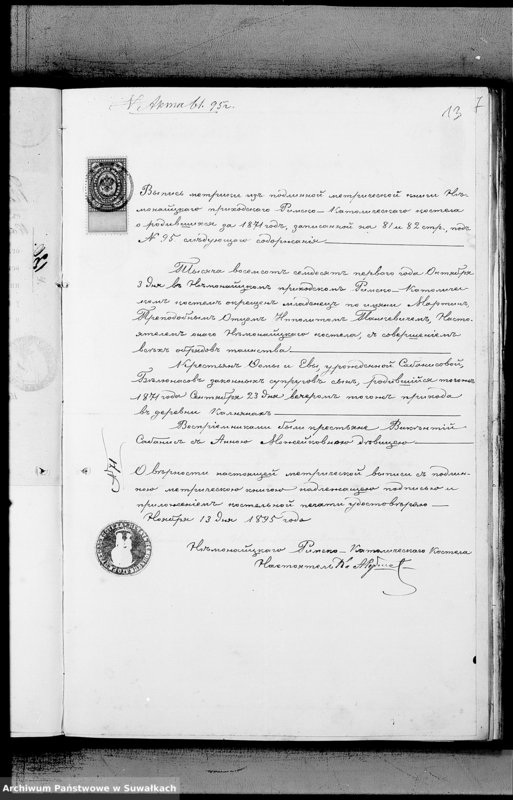 N Акта 61. 95г.
13
7
Выпись метрики изъ подлинной метрической книги Нѣ-
монайцкаго приходскаго Римско-Католическаго костела
о родившихся за 1871 годъ, записанной на 81 и 82 стр., подъ
N 95 слѣдующаго содержанія
Тысяча восемсотъ семдесятъ перваго года Октября
3 дня въ Нѣмонайцкомъ приходскомъ Римско-Католичес-
комъ костелѣ окрещенъ младенецъ по имени Мартинъ,
Преподобнымъ Отцомъ Ипполитомъ Насто-
ятелемъ онаго Нѣмонайцкаго костела, съ совершеніемъ
всѣхъ обрядовъ таинства
Крестьянъ Ѳомы и Евы, урожденной Сабаписовой,
законныхъ супруговъ сынъ, родившійся тогожъ
1871 года Сентября 23 дня вечеромъ тогожъ прихода
въ деревни
Воспріемниками были крестьяне Викентій
съ Анною дѣвицею
О вѣрности настоящей метрической выписи съ подлин-
ною метрическою книгою надлежащею подписью и
приложеніемъ костельной печати удостовѣряю
Ноября 13 дня 1895 года
N 71
Нѣмонайцкаго Римско-Католическаго Костела
Настоятель Кс.
Archiwum Państwowe w Suwałkach